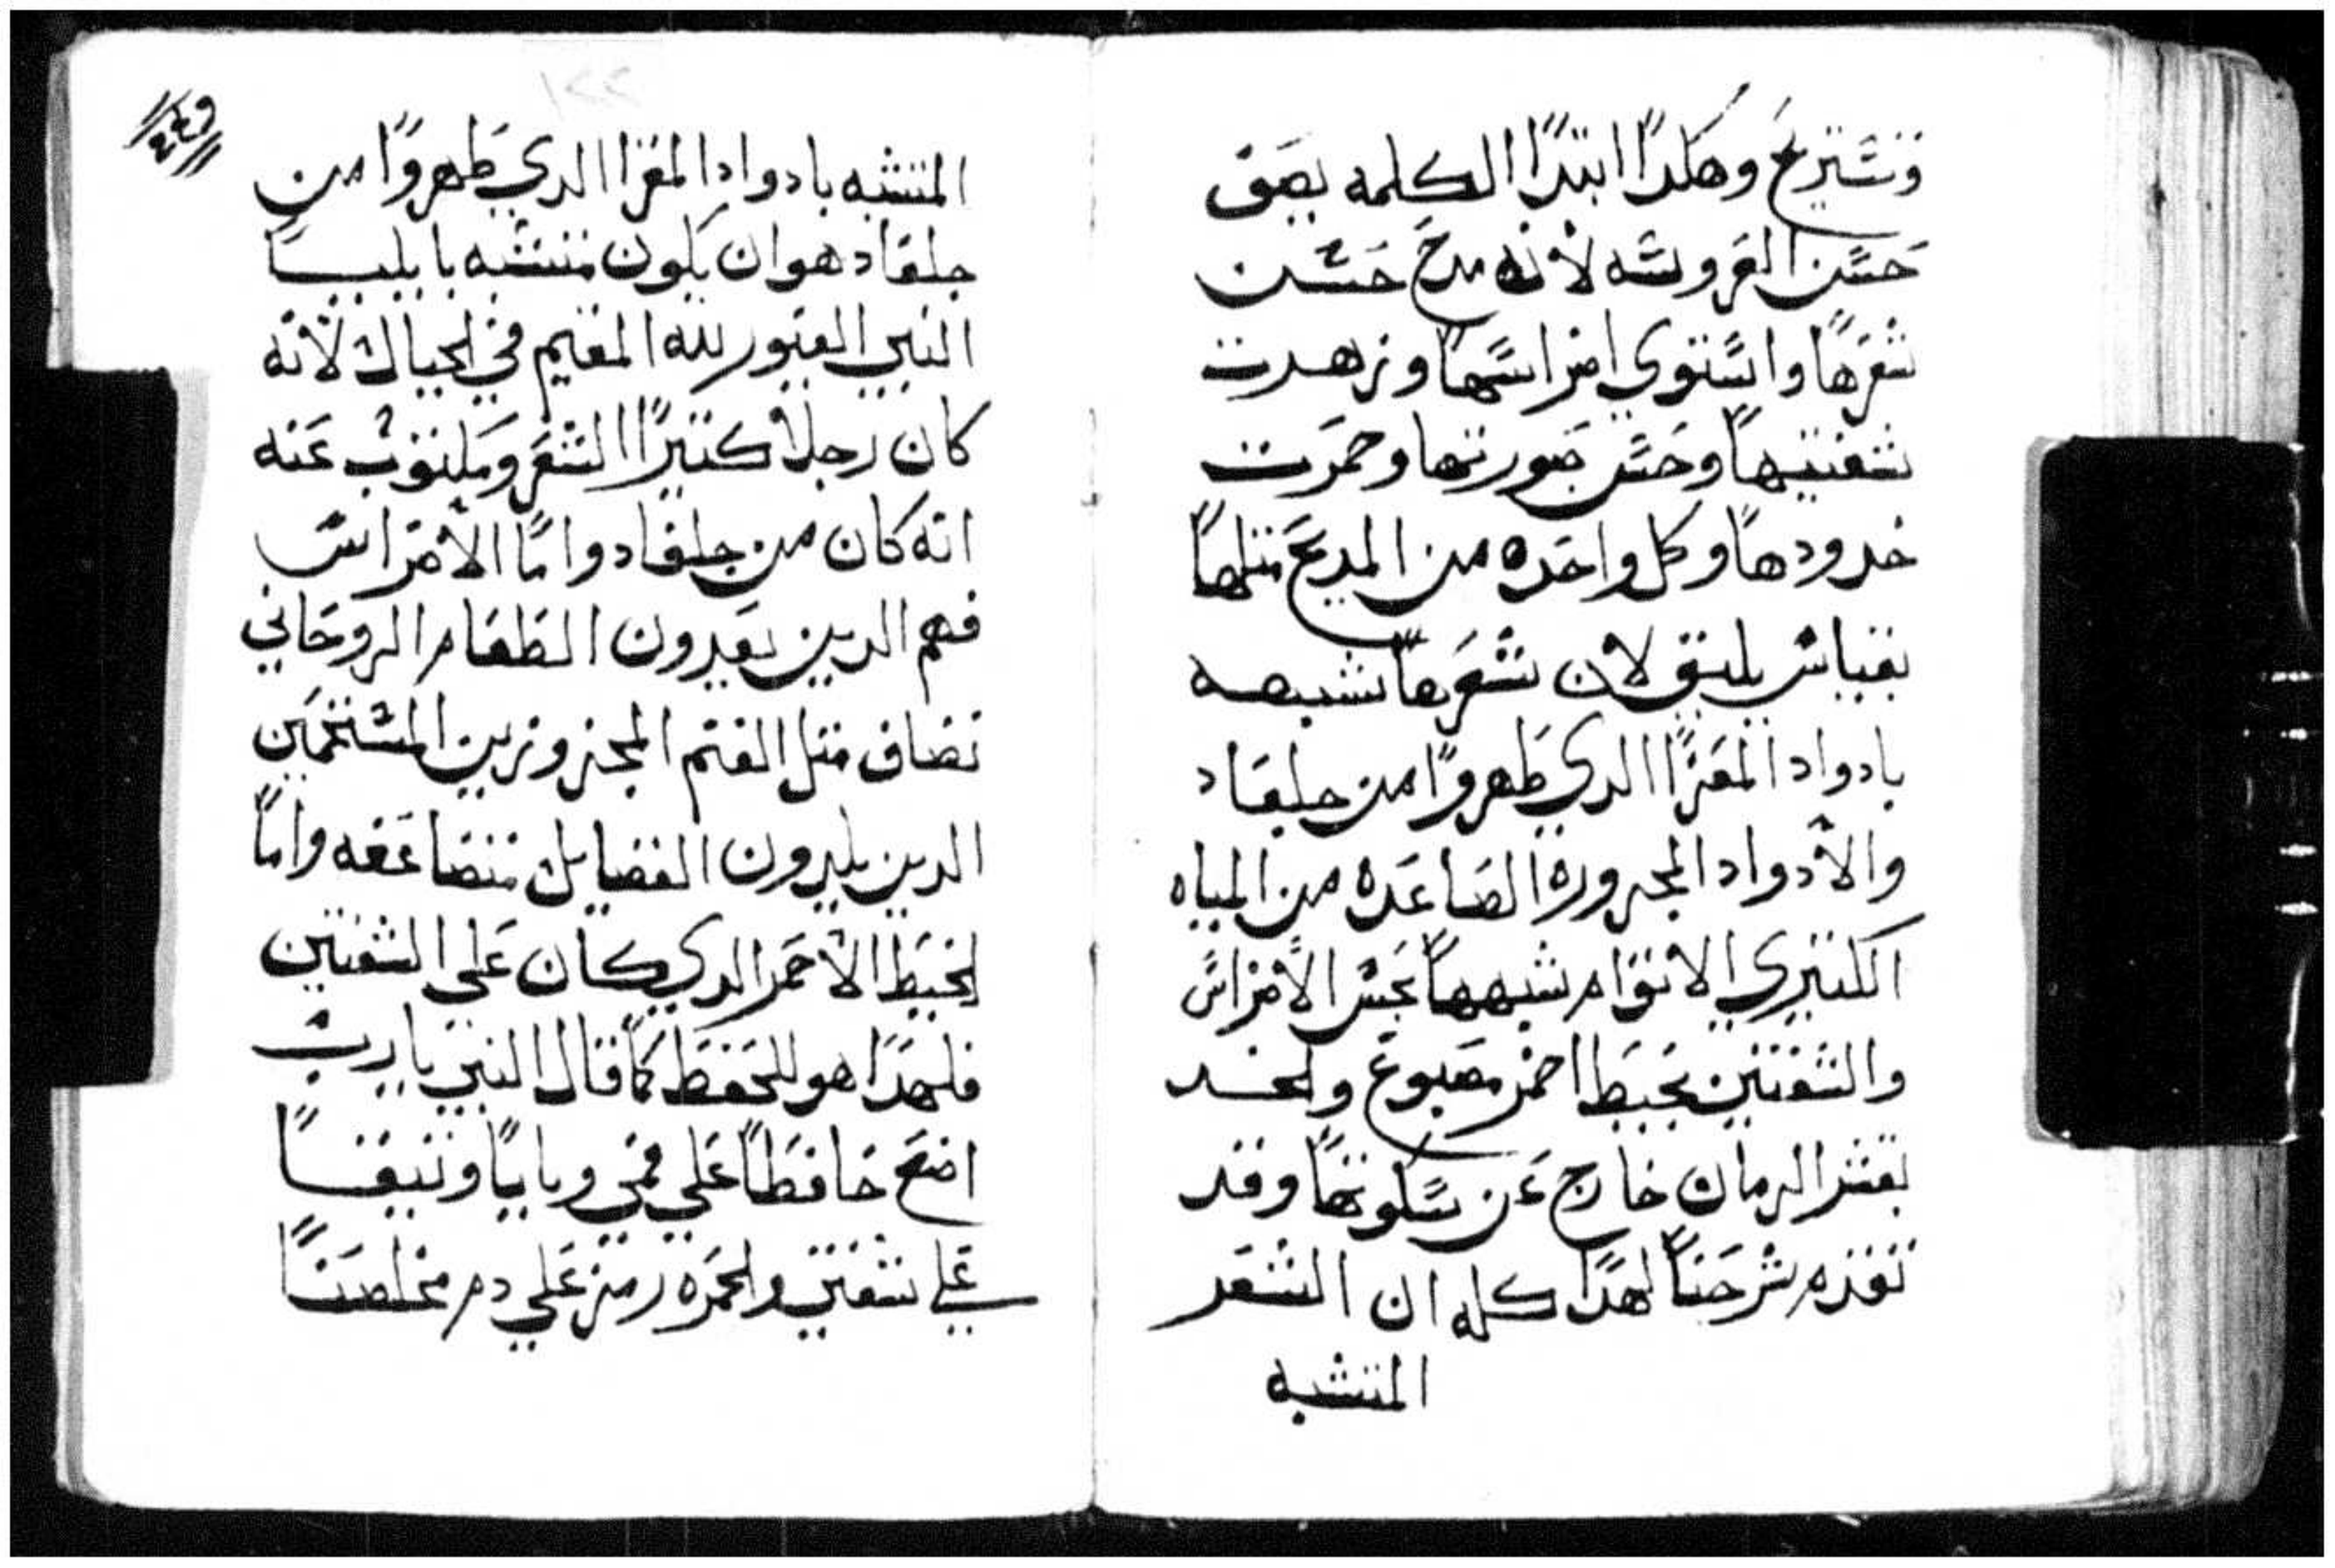 وتستريح وهكدًا ابتدًا الكلمه يصف
حسن العروسه لأنه مدح حسن
شعرهًا واستوي اضراسهًا وزهدت
شفتيهًا وحسن صورتها وحمرت
خدودهًا وكل واحده من المديح مثلهًا
بقياس يليق لان شعرهًا شبهه
بادواد المعزًا الدي ظهروًا من جلعاد
والأدواد المجزوره الصاعده من المياه
الكثيري الاتوام شبههًا بحسن الأضراس
والشفتين بخيط احمر مصبوغ والخد
بقشر الرمان خارج عن سكوتهًا وقد
تقدم شرحنًا لهدًا كله ان الشعر
المتشبه
٢٤٩
المتشبه بادواد المعزا الدي ظهروًا من
جلعاد هو ان يكون متشبه بايليا
النبي الغيور لله المقيم في الجبال لأنه
كان رجلاً كثيرًا الشعر ومكتوب عنه
انه كان من جلعاد وامًا الأضراس
فهم الدين يعدون الطعام الروحاني
تضاف مثل الغنم المجزوزين المستحمين
الدين يلدون الفضايل متضاعفه وامًا
الخيط الأحمر الدي كان علي الشفتين
فلهدًا هو للحفظ كما قال النبي يا رب
اضع حافظًا علي فمي وبابًا وثيقًا
علي شفتي والحمره رمز علي دم مخلصنًا